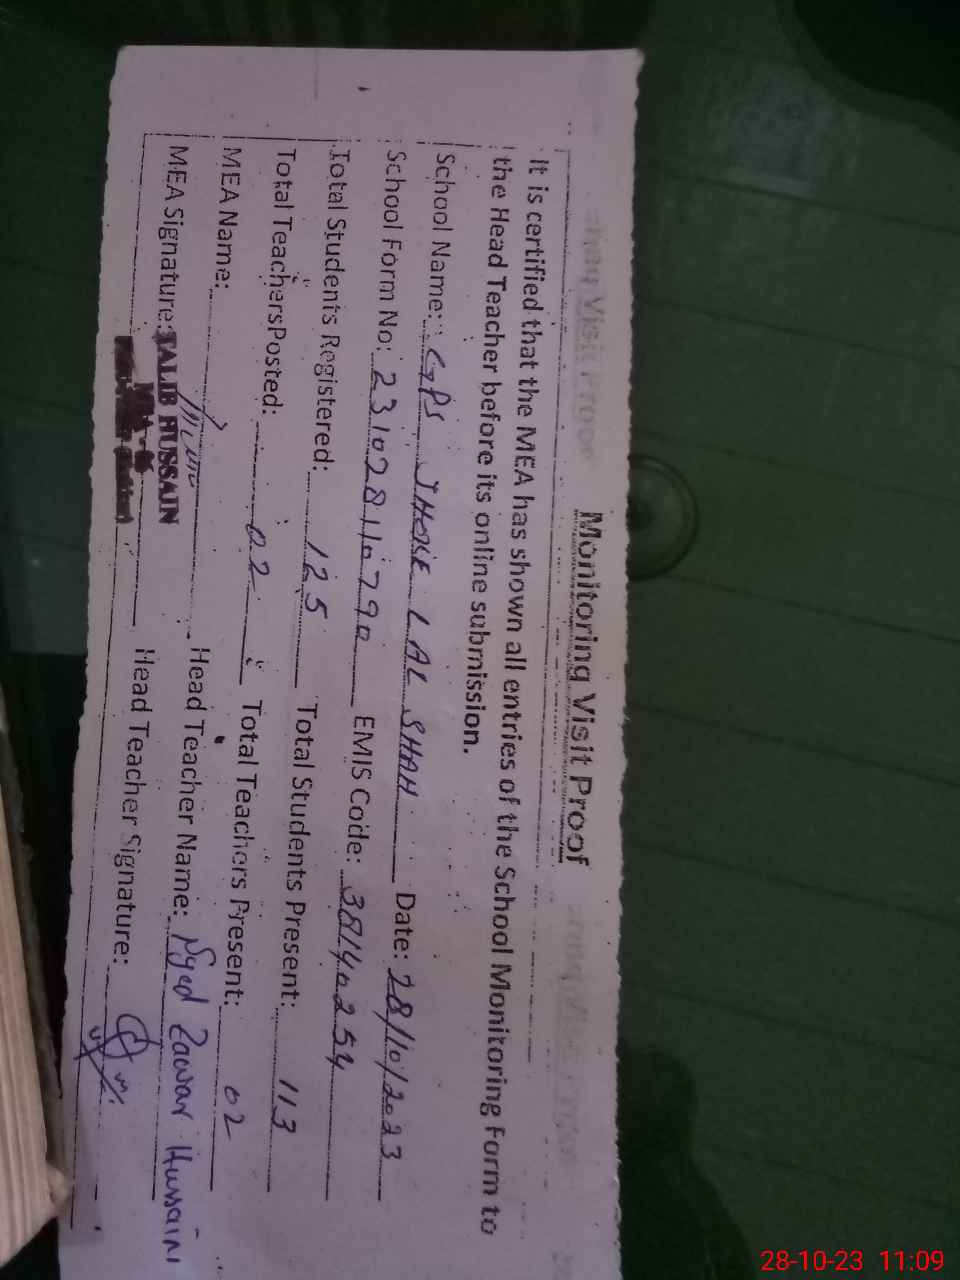 Monitoring Visit Proof
It is certified that the MEA has shown all entries of the School Monitoring Form to
the Head Teacher before its online submission.
School Name: GPS JHOKE LAL SHAH Date: 28/10/2023
School Form No: 231028110790 EMIS Code: 38140254
Total Students Registered: 125 Total Students Present: 113
Total Teachers Posted: 02 Total Teachers Present: 02
MEA Name: Head Teacher Name: Syed Zawar Hussain
MEA Signature: TALIB HUSSAIN Head Teacher Signature:
28-10-23 11:09